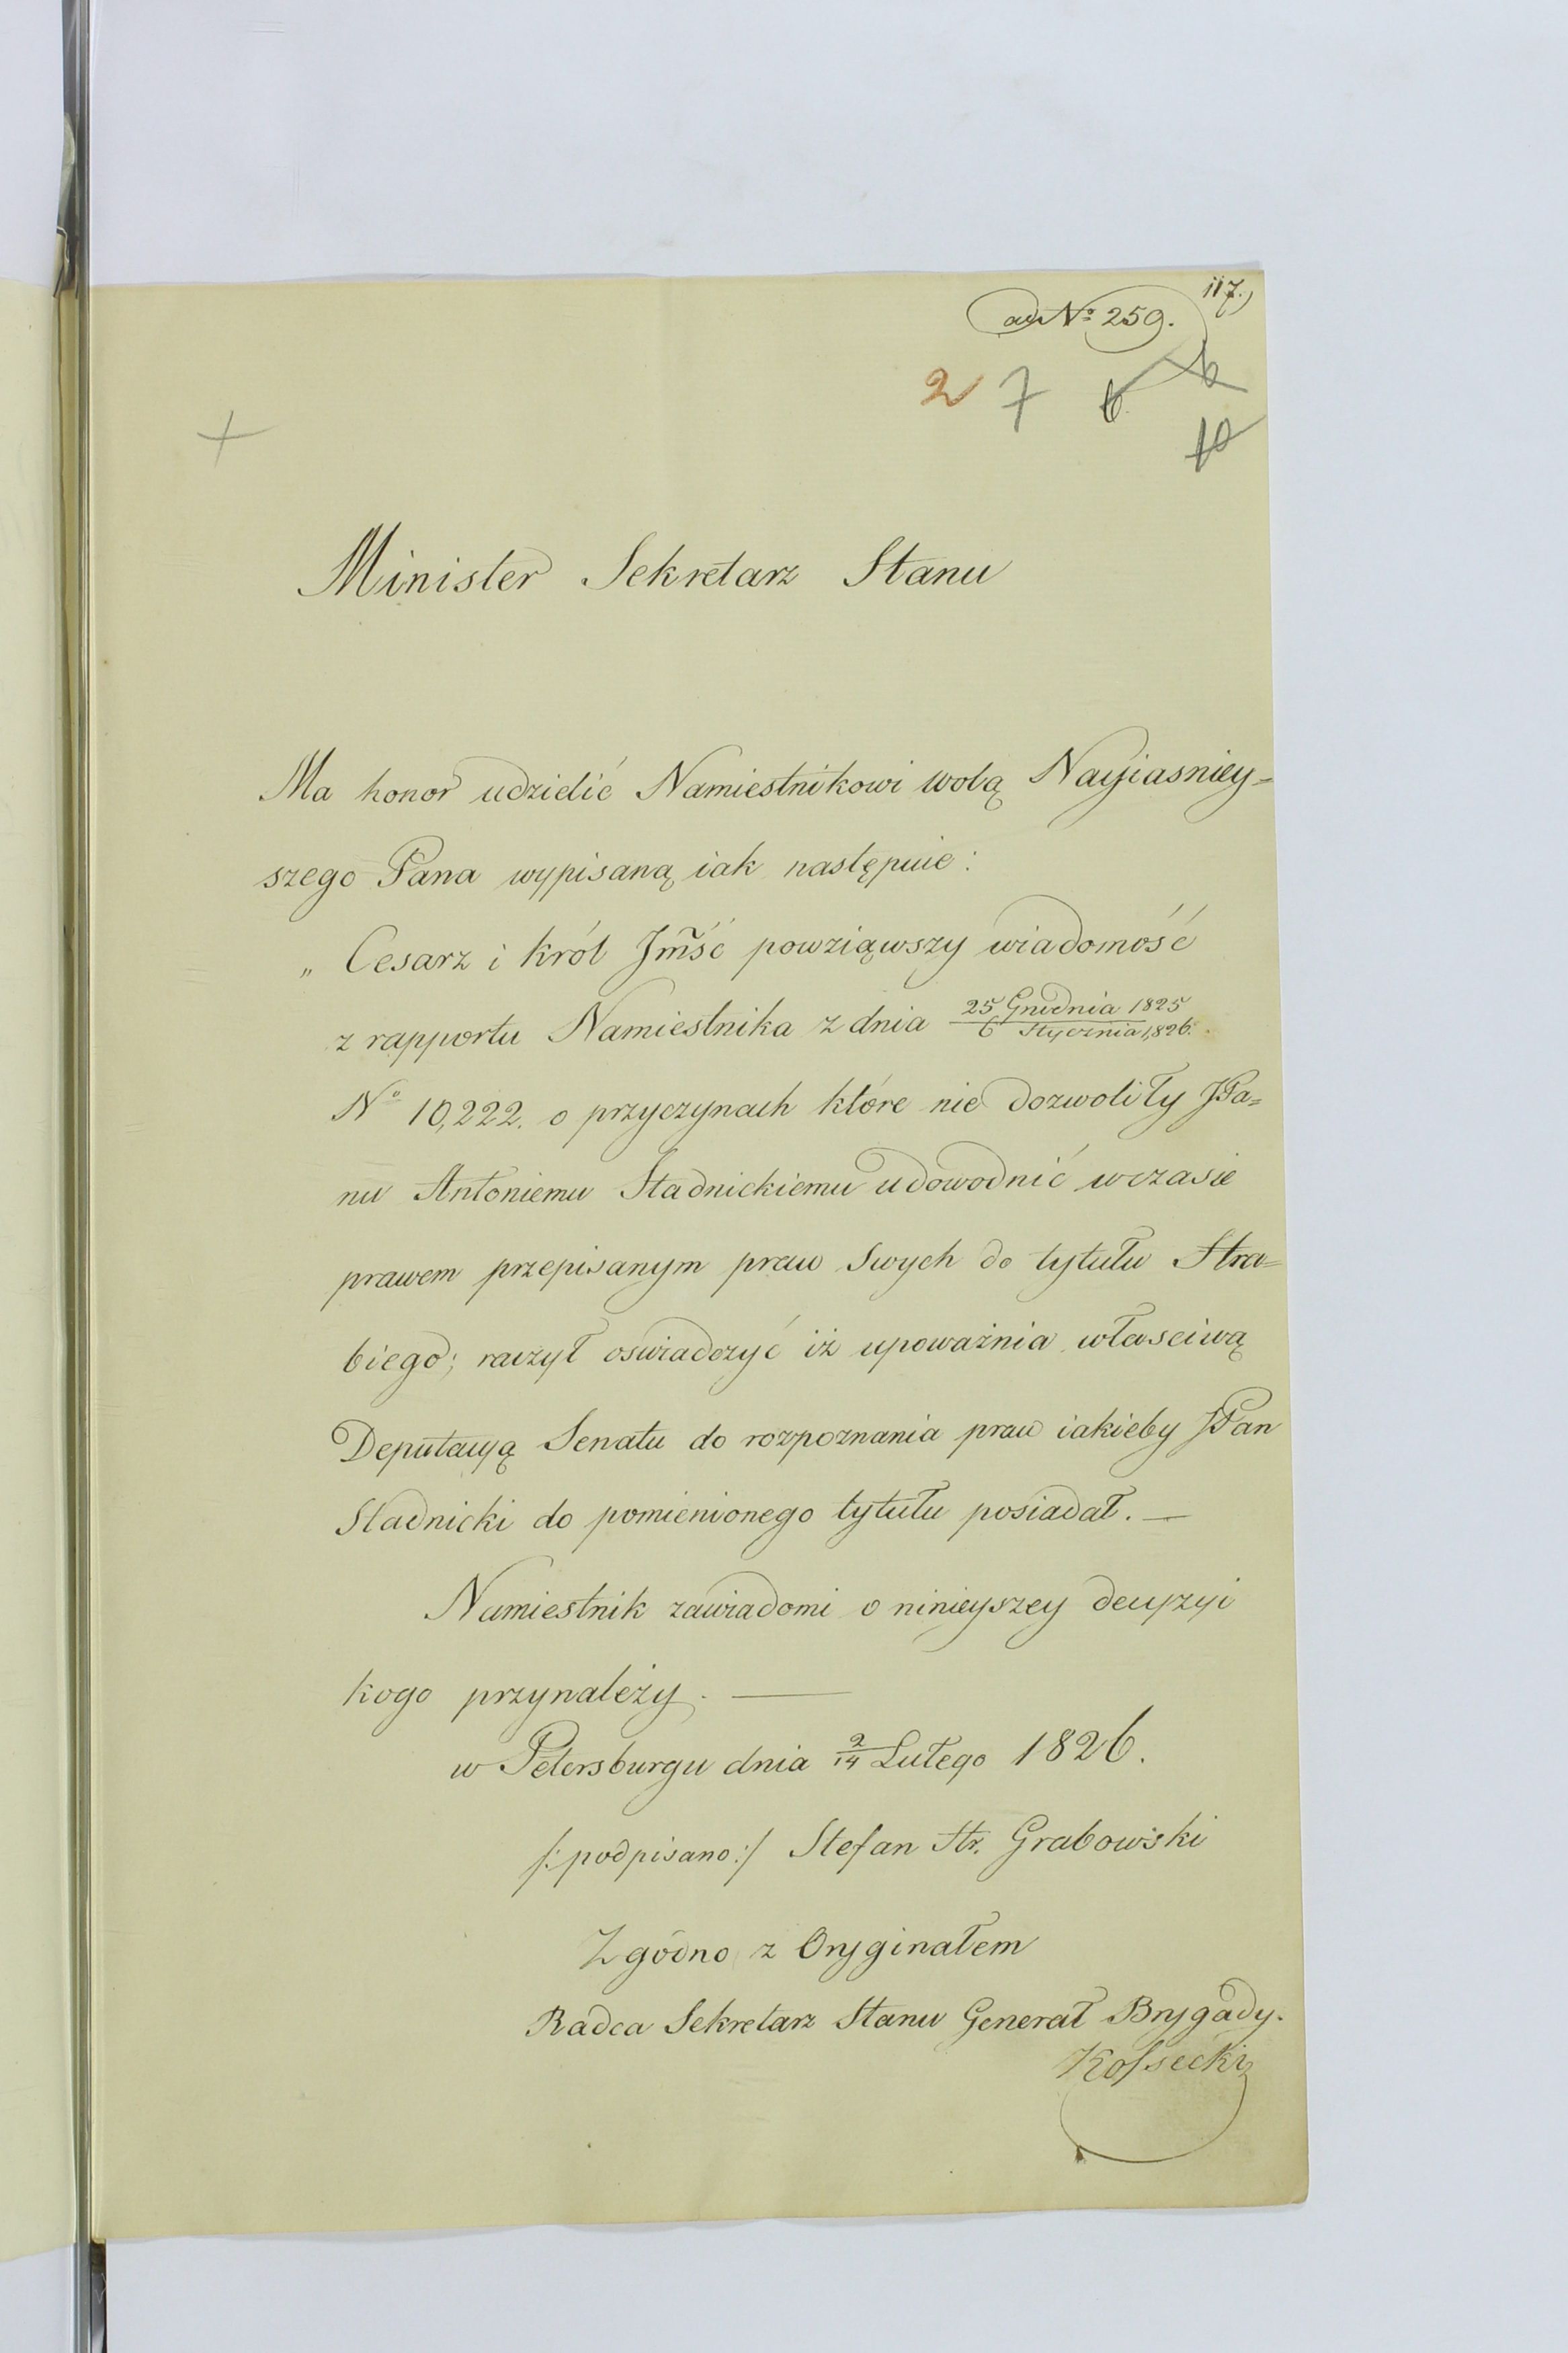 117.
ad Nº 259.
2 7 6 6
10
Minister Sekretarz Stanu
Ma honor udzielić Namiestnikowi wolą Nayiasniey=
szego Pana wypisaną iak następuie:
„ Cesarz i Król Jm̃ść powziąwszy wiadomość
z rapportu Namiestnika z dnia 25 Grudnia 1825 / 6 Stycznia 1826.
Nº 10,222. o przyczynach które nie dozwoliły JPa=
nu Antoniemu Stadnickiemu udowodnić w czasie
prawem przepisanym praw Swych do tytułu Hra=
biego; raczył oswiadczyć iż upoważnia właściwą
Deputacyą Senatu do rozpoznania praw iakieby JPan
Stadnicki do pomienionego tytułu posiadał. —
Namiestnik zawiadomi o ninieyszey decyzyi
kogo przynależy. —
w Petersburgu dnia 2/14 Lutego 1826.
/: podpisano :/ Stefan Hr. Grabowski
Zgodno z Oryginałem
Radca Sekretarz Stanu Generał Brygady.
Kossecki